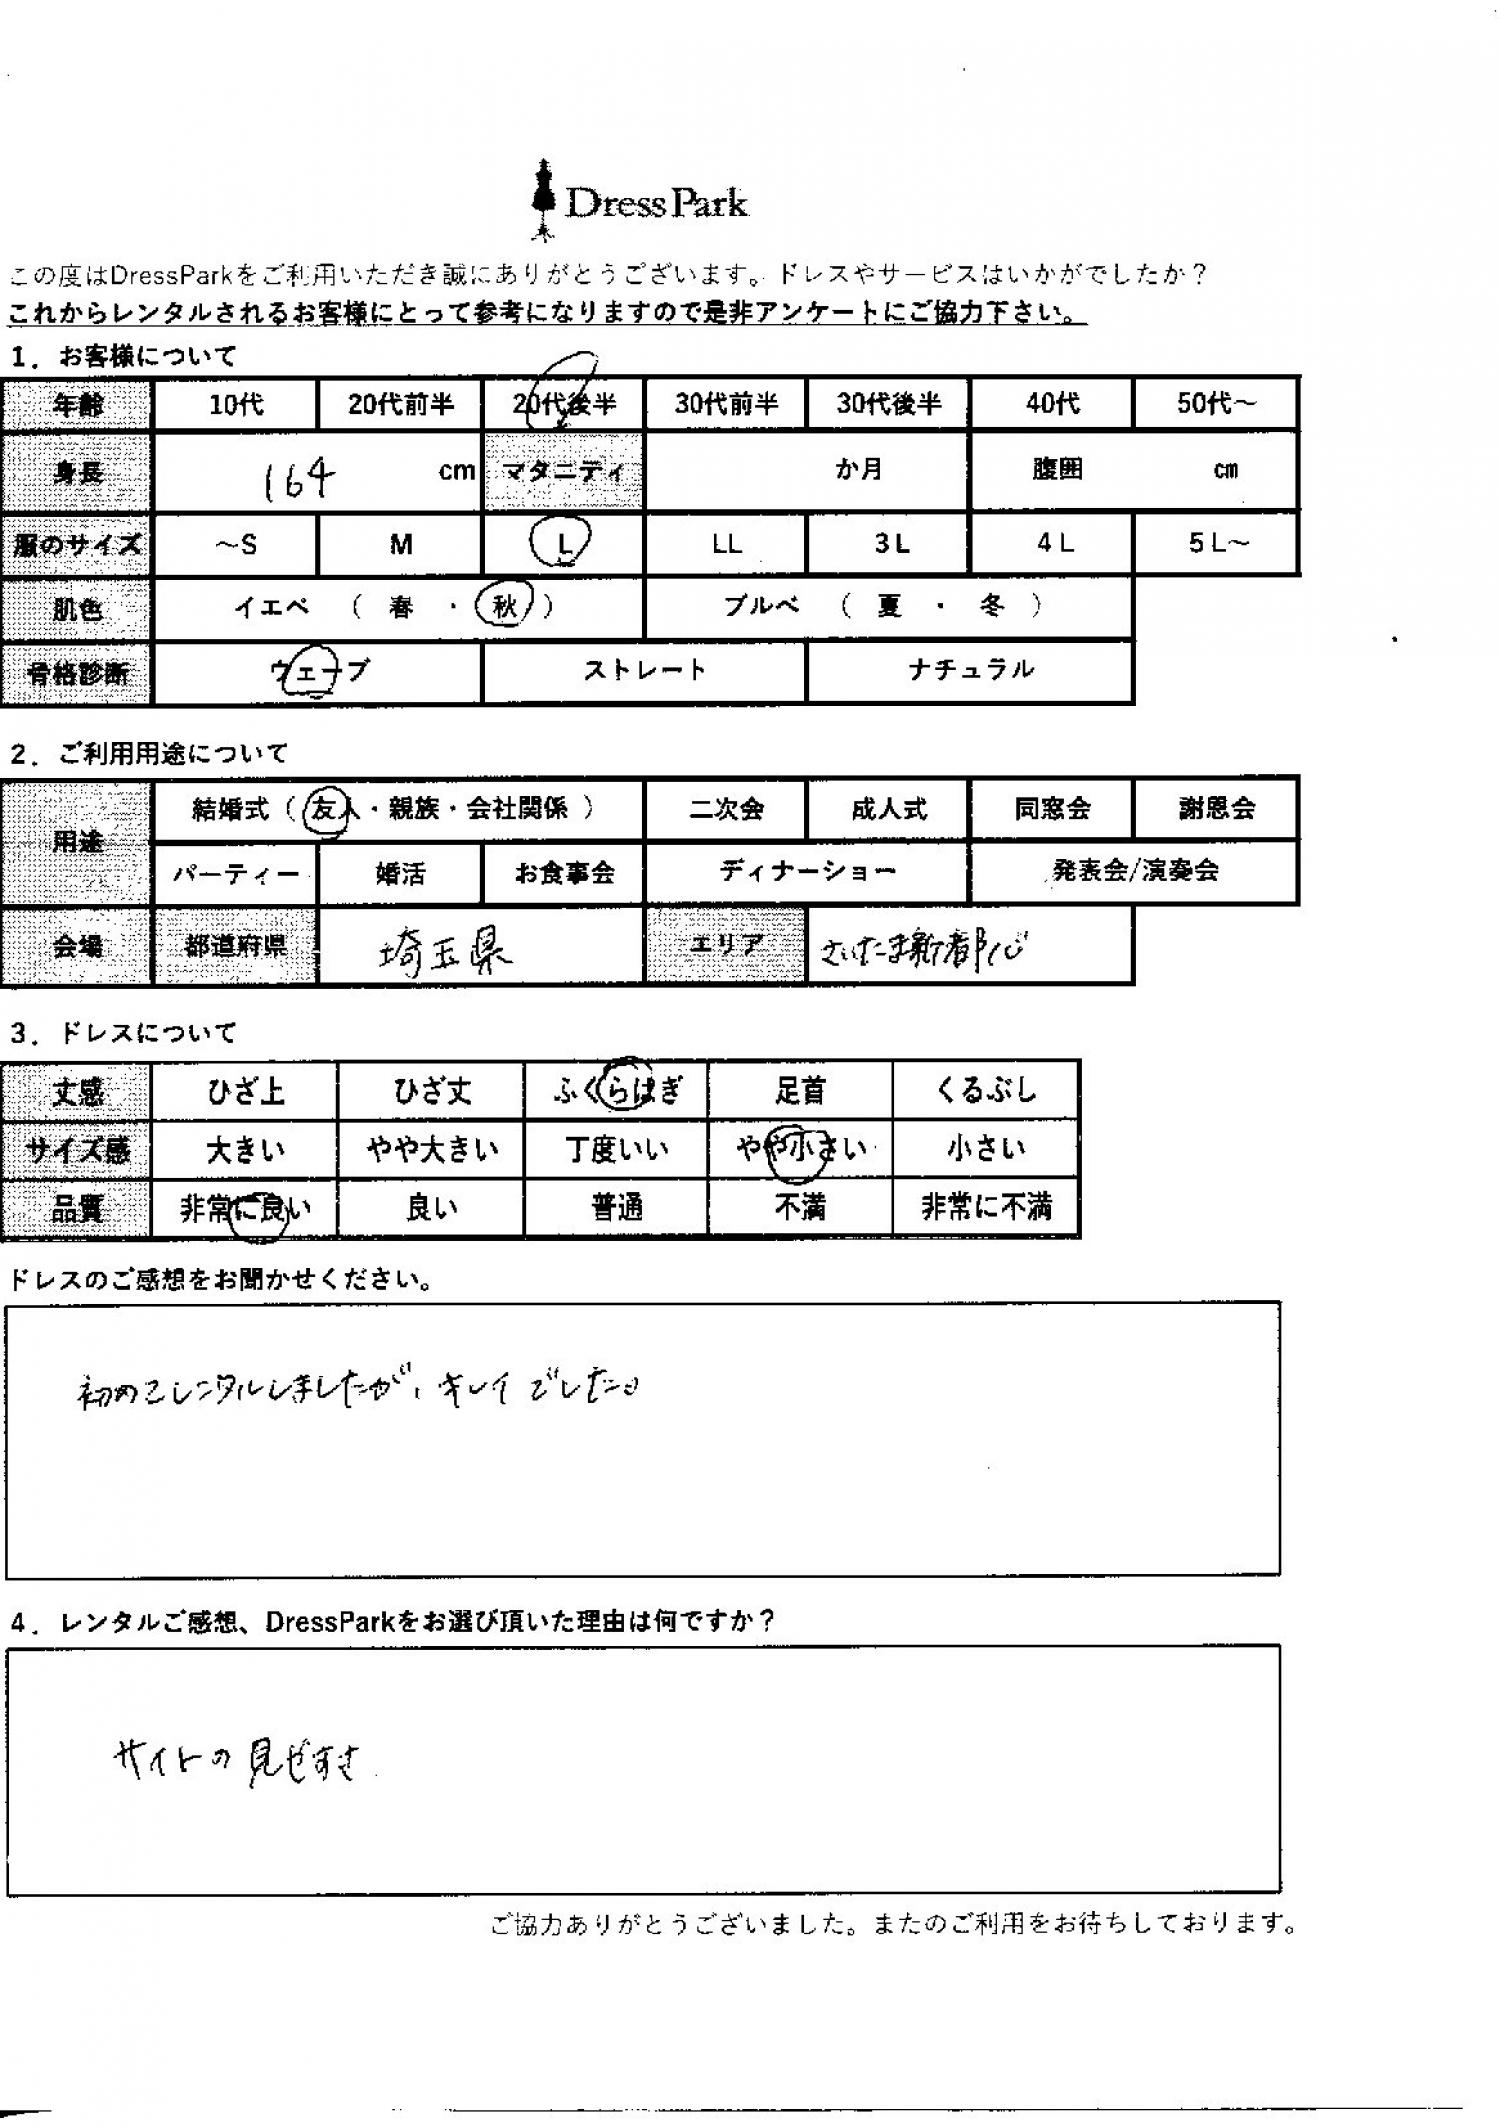 DressPark
この度はDressParkをご利用いただき誠にありがとうございます。ドレスやサービスはいかがでしたか？
これからレンタルされるお客様にとって参考になりますので是非アンケートにご協力下さい。
1．お客様について
年齢 10代 20代前半 20代後半 30代前半 30代後半 40代 50代～
身長 164 cm マタニティ か月 腹囲 cm
服のサイズ ～S M L LL 3L 4L 5L～
肌色 イエベ （ 春 ・ 秋 ） ブルベ （ 夏 ・ 冬 ）
骨格診断 ウェーブ ストレート ナチュラル
2．ご利用用途について
用途 結婚式（ 友人・親族・会社関係 ） 二次会 成人式 同窓会 謝恩会
パーティー 婚活 お食事会 ディナーショー 発表会/演奏会
会場 都道府県 埼玉県 エリア さいたま新都心
3．ドレスについて
丈感 ひざ上 ひざ丈 ふくらはぎ 足首 くるぶし
サイズ感 大きい やや大きい 丁度いい やや小さい 小さい
品質 非常に良い 良い 普通 不満 非常に不満
ドレスのご感想をお聞かせください。
初めてレンタルしましたが、キレイでした。
4．レンタルご感想、DressParkをお選び頂いた理由は何ですか？
サイトの見やすさ
ご協力ありがとうございました。またのご利用をお待ちしております。